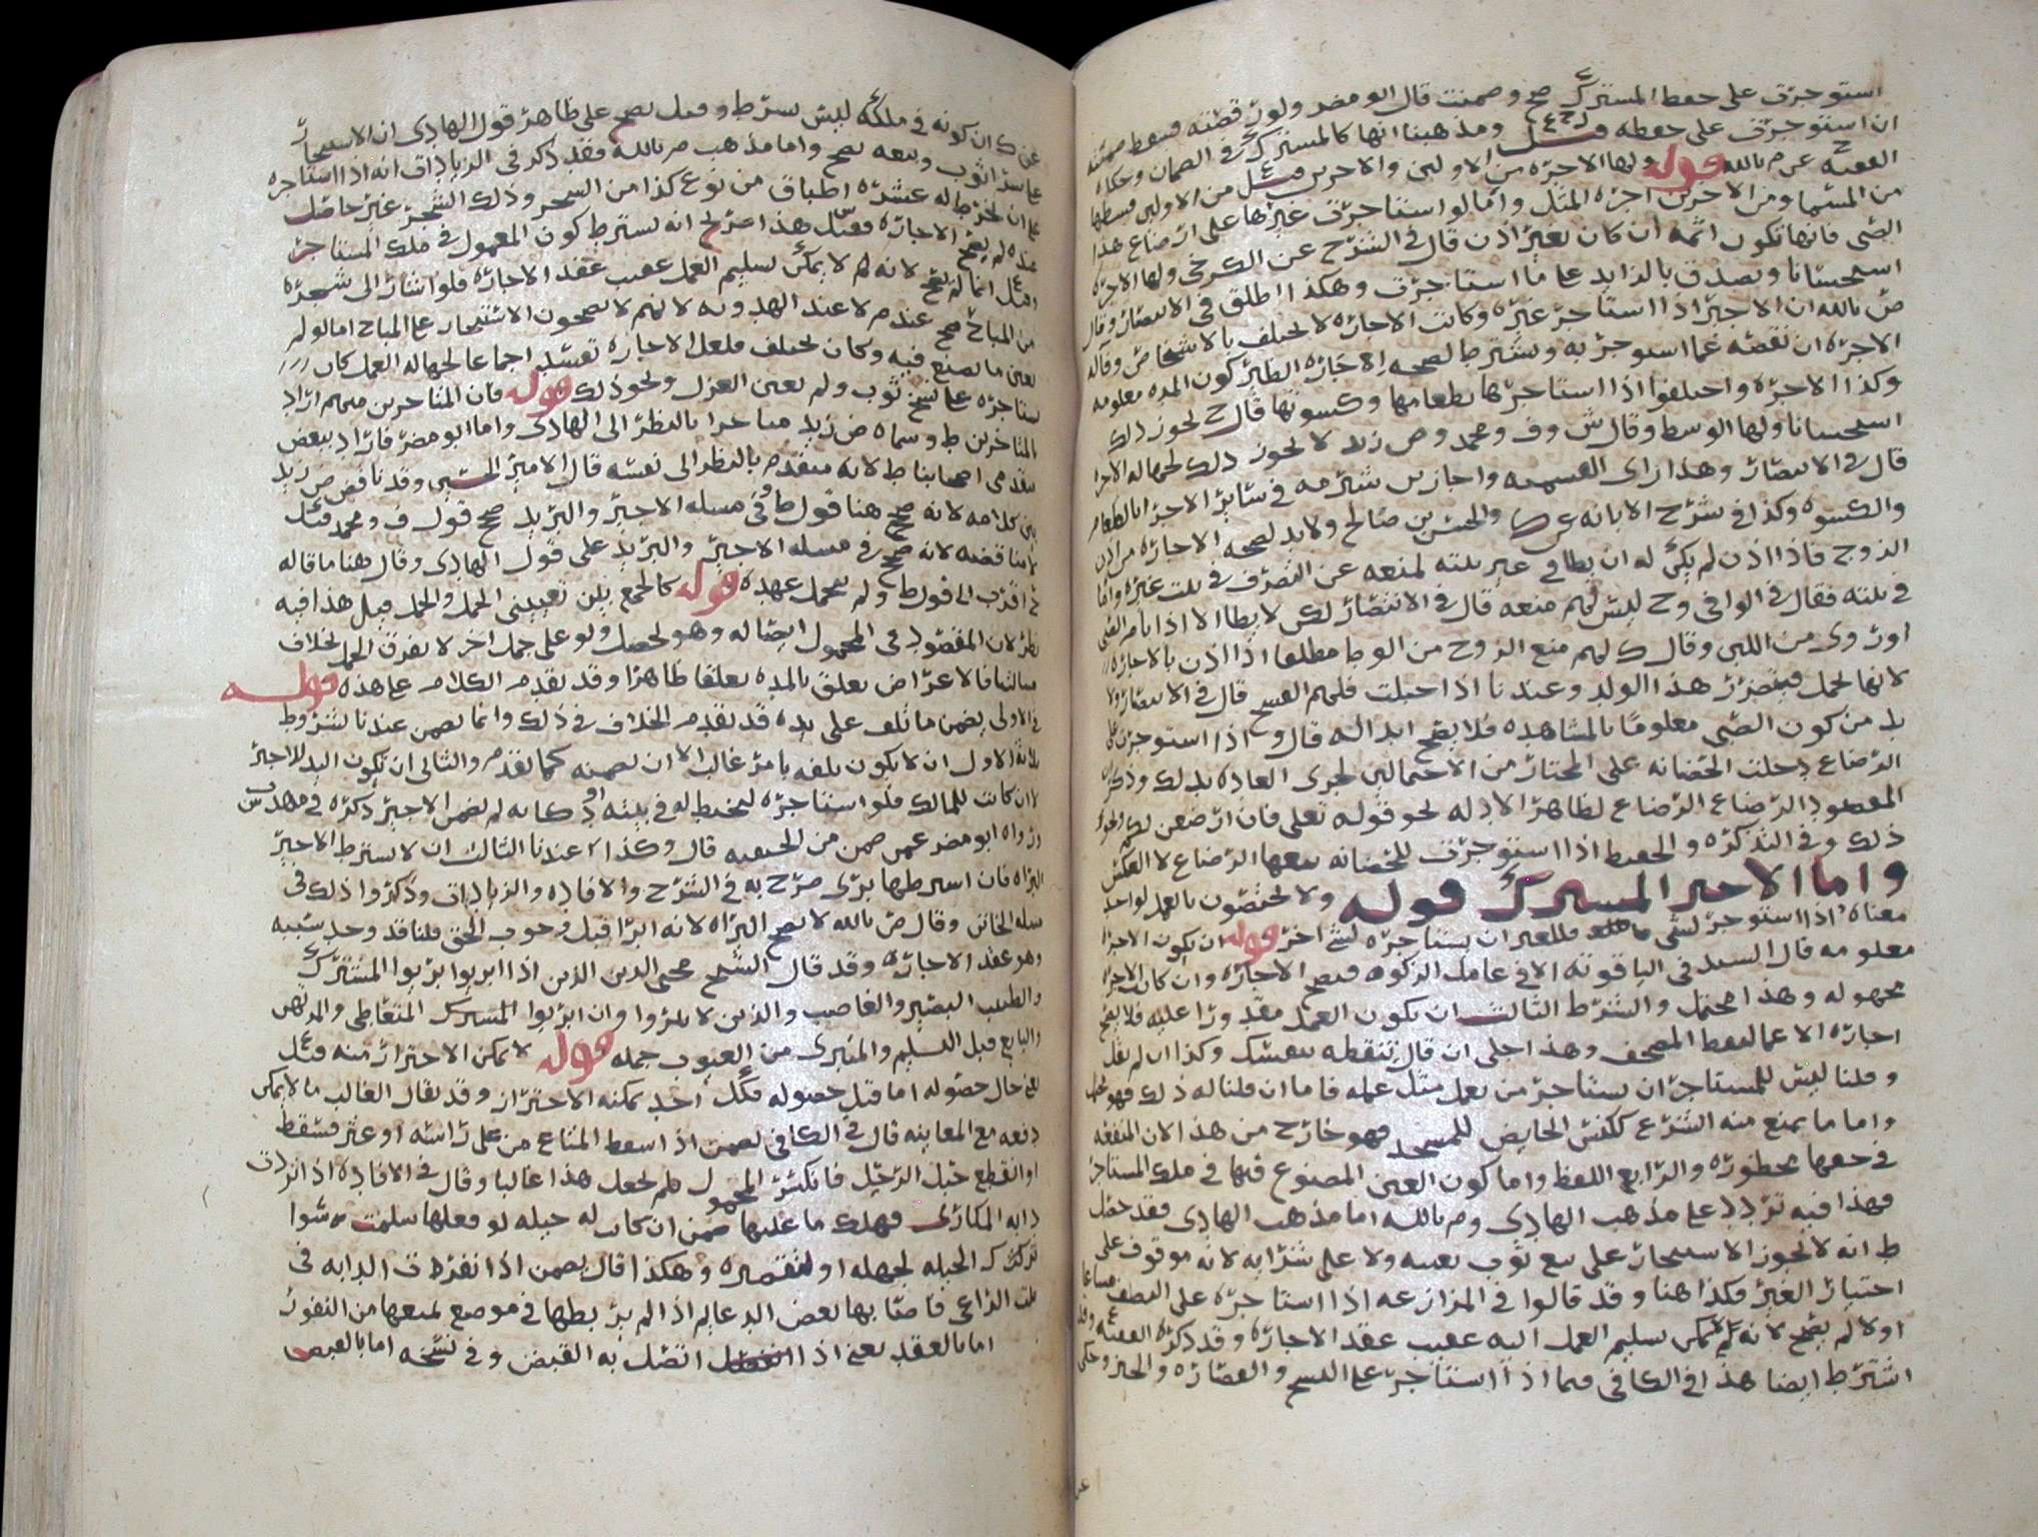 استوجرت على حفظ المشترك صح وضمنت قال ابو مضر ولو قصته فسقط ضمنته
ان استوجرت على حفظه ومذهبنا انها كالمشترك في الضمان وحكاه
الفقيه ح عن م بالله قوله ولها الاجره من الاولين والاخرين قيل من الاولين قسطها
من المسما ومن الاخرين اجره المثل وانما لو استاجرت غيرها على ارضاع هذا
الصبي فانها تكون اثمه ان كان بغير اذن قال في الشرح عن الكرخي ولها الاجره
استحسانا وتصدق بالزايد على ما استاجرت وهكذا اطلق في الانتصار وقال
ض بالله ان الاجير اذا استاجر غيره وكانت الاجاره لا تختلف بالاشخاص وقاله
الاجره ان نقصه عما استوجر به ويشترط لصحه اجاره الظير كون المده معلومه
وكذا الاجره واختلفوا اذا استاجرها بطعامها وكسوتها قال ح يجوز ذلك
استحسانا ولها الوسط وقال ش وف ومحمد وض زيد لا يجوز ذلك لجهاله الاجرا
قال في الانتصار وهذا راى القسميه واجاز شريح في سائر الاجرا بالطعام
والكسوه وكذا في شرح الابانه عن والحسن بن صالح ولا بد لصحه الاجاره من اذن
الزوج فاذا اذن لم يكن له ان يطا في غير بيته لمنعه عن التصرف في بيت غيره واما
في بيته فقال في الوافي وح ليس لهم منعه قال في الانتصار لكن لا يطا الا اذا نام الصبي
اوروى من اللبن وقال ك لهم منع الزوج من الوط مطلقا اذا اذن بالاجاره
لانها تحمل فيتضرر هذا الولد وعندنا اذا حبلت فلهم الفسخ قال في الانتصار ولا
بد من كون الصبي معلوما بالمشاهده فلا يصح ابداله قال وح اذا استوجرت على
الرضاع دخلت الحضانه على المختار من الاحتمالين لجرى العاده بذلك وذكر ان
المقصود الرضاع لظاهر الادله نحو قوله تعلى فان ارضعن لكم ونحو
ذلك وفي التذكره والحفيظ اذا استوجرت للحضانه تبعها الرضاع لا العكس
واما الاجير المشترك قوله ولا يختصون بالعمل لواحد
معناه اذا استوجر لشي فللغير ان يستاجره لشي اخر قوله ان يكون الاجرا
معلومه قال السيد في الياقوته الا في عامل الزكوه فيصح الاجاره وان كانت الاجرا
مجهوله وهذا محتمل والشرط الثالث ان يكون العمل مقدورا عليه فلا يصح
اجاره الاعما لنقط المصحف وهذا اجلى ان قال تنقطه بنفسك وكذا ان لم يقل
وقلنا ليس للمستاجر ان يستاجر من يعمل مثل عمله فاما ان قلنا له ذلك فهو
واما ما يمنع منه الشرع ككنس الحايض للمسجد فهو خارج من هذا لان المنفعه
في حقها محظوره والرابع اللفظ واما كون العين المصنوع فيها في ملك المستاجر
فهذا فيه تردد على مذهب الهادي وم بالله اما مذهب الهادي فقد حصل
ط انه لا يجوز الاستيجار على بيع ثوب بعينه ولا على شرايه لانه موقوف على
اختيار الغير فكذا هنا وقد قالوا في المزارعه اذا استاجره على النصف مشاعا
اولا لم يصح لانه لا يمكن تسليم العمل اليه عقيب عقد الاجاره وقد ذكره الفقيه
اشترط ايضا هذا في الكافي فيما اذا استاجر على النسج والقصاره والخبز وحكى
عن ك ان كونه في ملكه ليس بشرط وقيل يصح على ظاهر قول الهادي ان الاستيجار
على شرا ثوب وبيعه يصح واما مذهب م بالله فقد ذكر في الزيادات انه اذا استاجره
على ان يخرط له عشره اطباق من نوع كذا من الشجر وذلك الشجر غير حاصل
عنده لم يصح الاجاره فقيل هذا على انه يشترط كون المعمول في ملك المستاجر
وقيل انما لم يصح لانه لا يمكن تسليم العمل عقيب عقد الاجاره فلو اشار الى شجره
من المباح صح عند م لا عند الهدويه لانهم لا يصححون الاستيجار على المباح اما لو لم
يعين ما يصنع فيه وكان يختلف فلعل الاجاره تفسد اجماعا لجهاله العمل كان
يستاجره على نسج ثوب ولم يعين الغزل ونحو ذلك قوله فان المتاخرين منهم اراد
بالمتاخرين ط وسماه ض زيد متاخرا بالنظر الى الهادي واما ابو مضر فاراد ببعض
متقدمي اصحابنا ط لانه متقدم بالنظر الى نفسه قال الامير الحسين وقد ناقض ض زيد
بين كلامه لانه صحح هنا قول ط وفي مسله الاجير والبريد صحح قول ف ومحمد قيل
لا مناقضه لانه صحح في مسله الاجير والبريد على قول الهادي وقال هنا ما قاله
اقرب الى قول ط ولم يحمل عهده قوله كالجمع بين تعيين الحمل والحمل قيل هذا فيه
نظر لان المقصود في المحمول ايصاله وهو يحصل ولو على جمل اخر لا يفرق الحمل بخلاف
مسالتنا فالاعراض يعلق بالمده تعلقا ظاهرا وقد تقدم الكلام على هذه قوله
في الاولى يضمن ما تلف على يده قد تقدم الخلاف في ذلك وانما يضمن عندنا بشروط
ثلاثه الاول ان لا يكون تلفه بامر غالب الا ان يضمنه كما تقدم والثاني ان تكون اليد للاجير
لا ان كانت للمالك فلو استاجره ليخيط له في بيته او دكانه لم يضمن الاجير ذكره في مهذب ش
ورواه ابو مضر عمن ضمن من الحنفيه قال وكذا عندنا الثالث ان لا يشترط الاجير
البراه فان اشترطها برى صرح به في الشرح والافاده والزيادات وذكروا ذلك في
مسله الخاتن وقال ض بالله لا يصح البراه لانه ابرا قبل وجوب الحق قلنا قد وجد سببه
وهو عقد الاجاره وقد قال الشيخ محيى الدين الذين اذا ابريوا بريوا المشترك
والطبيب البصير والغاصب والذين لا يبروا وان ابريوا المشترك المتعاطي والمرتهن
والبايع قبل التسليم والمتبرى من العيوب جمله قوله لا يمكن الاحتراز منه قيل
يعني حال حصوله اما قبل حصوله فكل احد يمكنه الاحتراز وقد يقال الغالب ما لا يمكن
دفعه مع المعاينه قال في الكافي يضمن اذا سقط المتاع من على راسه او عثر فسقط
او انقطع حبل الرحل فانكسر المحمول فلم يجعل هذا غالبا وقال في الافاده اذا نزلت
دابه المكارى فهلك ما عليها ضمن ان كان له حيله لو فعلها سلمت سوا
ترك الحيله لجهله او لتقصيره وهكذا قال يضمن اذا تفرطت الدابه في
الراعي فاصابها بعض البدعالم اذا لم يربطها في موضع يمنعها من النفور
اما بالعقد يعني اذا اتصل به القبض وفي نسخه اما بالقبض